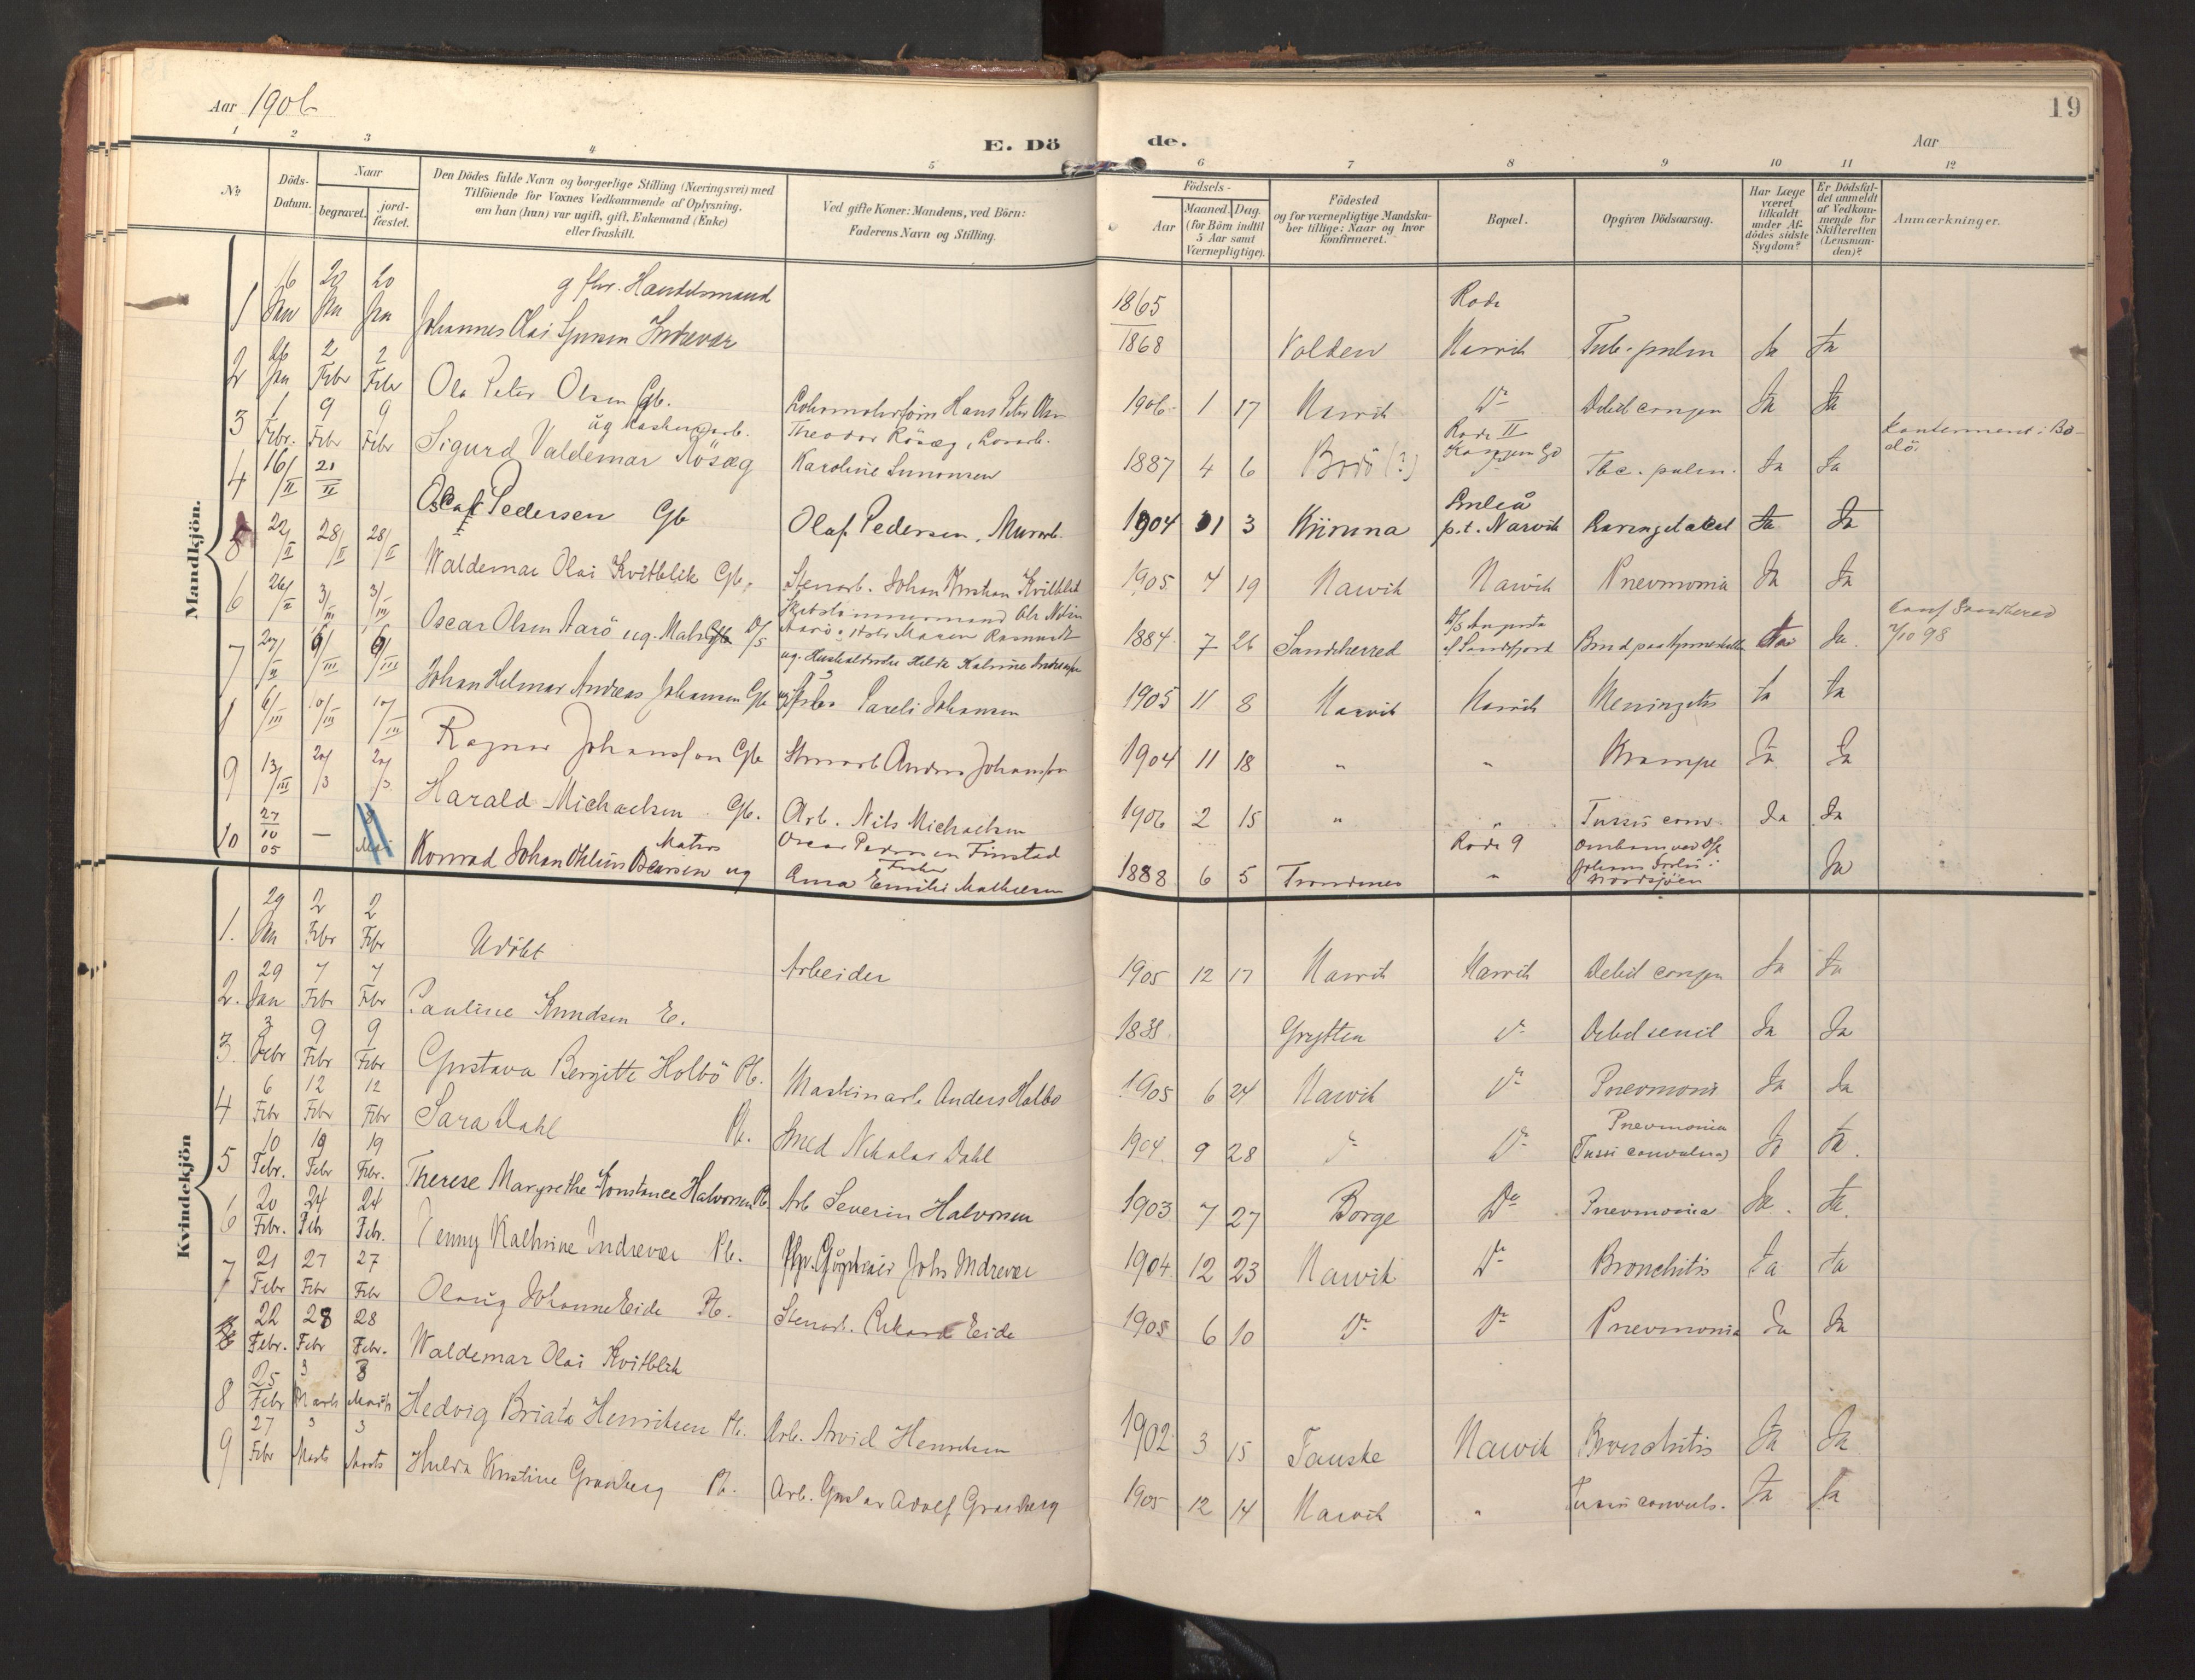 Aar 1906
19
E. Dö de.
Aar
1 2 3 4 5 6 7 8 9 10 11 12
№
Döds-Datum.
Naar
begravet.
jordfæstet.
Den Dödes fulde Navn og borgerlige Stilling (Næringsvei) med
Tilföiende for Voxnes Vedkommende af Oplysning,
om han (hun) var ugift, gift, Enkemand (Enke)
eller fraskilt.
Ved gifte Koner: Mandens, ved Börn:
Faderens Navn og Stilling.
Födsels-
Aar
Maaned. Dag.
(for Börn indtil
5 Aar samt
Værnepligtige).
Födested
og for værnepligtige Mandska-
ber tillige: Naar og hvor
konfirmeret.
Bopæl.
Opgiven Dödsaarsag.
Har Læge
været
tilkaldt
under Af-
dödes sidste
Sygdom?
Er Dödsfal-
det anmeldt
af Vedkom-
mende for
Skifteretten
(Lensman-
den)?
Anmærkninger.
Mandkjön.
1 16 Jan 20 Jan 20 Jan g fhv. Handelsmand Johannes Olai Indrevær 1865 1868 Volden Rode Narvik Tub. pulm Ja Ja
2 Jan 2 Febr 2 Febr Ole Peter Olsen Gb. Hans Peter Olsen 1906 1 17 Narvik Do Debil congen Ja Ja
3 1 Febr. 9 Febr 9 Febr ug Sigurd Valdemar Rösæg Theodor Rösæg, Karoline Simonsen 1887 4 6 Bodö (?) Rode II Tbc. pulm. Ja Ja
4 16/II 21/II Olaf Pedersen Gb Olaf Pedersen, Murarb. 1904 1 3 Kiiruna Luleå p.t. Narvik Ja Ja
5 22/II 28/II 28/II Waldemar Olai Kvitblik Gb, Stenarb. Johan Kristian Kvitblik 1905 7 19 Narvik Narvik Pnevmonia Ja Ja
6 26/II 3/III 3/III Oscar Olsen Aarö ug. D/S 1884 7 26 Sandeherred D/S Augusta af Sandefjord Ja. Conf Sandherred 2/10 98
7 27/II 6/III 6/III Johan Helmar Andreas Johansen Gb Pareli Johansen 1905 11 8 Narvik Narvik Meningitis Ja Ja
8 6/III 10/III 10/III Ragnar Johansson Gb Stenarb Anders Johansson 1904 11 18 " " Krampe Ja Ja
9 13/III 20/3 20/3 Harald Michaelsen Gb. Arb. Nils Michaelsen 1906 2 15 " " Tussis conv. Ja Ja
10 27/10 05 — Mai Konrad Johan Oscarsen ug Matros Oscar Pedersen Finstad Fisker Anna Emilie Mathiesen 1888 6 5 Trondenes Rode 9 " Omkom ved Nordsjöen Ja
Kvindekjön
1. 29 Jan 2 Febr 2 Febr Udöbt Arbeider 1905 12 17 Narvik Narvik Debil congen Ja Ja
2. 29 Jan 7 Febr 7 Febr Pauline Knudsen E. 1838 Grytten Do Debil senil Ja Ja
3. 3 Febr 9 Febr 9 Febr Gustava Bergitte Holbö Pb. Maskinarb Anders Holbö 1905 6 24 Narvik Do Pnevmoni Ja Ja
4 6 Febr 12 Febr 12 Febr Sara Dahl Pb. Smed Nikolai Dahl 1904 9 28 Do Do Pnevmonia (Tussi convulsiva) Ja Ja.
5 10 Febr. 19 Febr 19 Febr. Therese Margrethe Konstance Halvorsen Pb. Arb Severin Halvorsen 1903 7 27 Borge Do Pnevmonia Ja. Ja.
6 20 Febr. 24 Febr 24 Febr. Jenny Kathrine Indrevær Pb. Johs Indrevær 1904 12 23 Narvik Do Bronchitis Ja Ja
7 21 Febr 27 Febr 27 Febr Olaug Johanne Eide Pb. Stenarb. Rikard Eide 1905 6 10 Do Do Pnevmonia Ja Ja
22 Febr. 28 Febr 28 Febr. Waldemar Olai Kvitblik
8 25 Febr 3 Marts 3 Marts Hedvig Briata Henriksen Pb. Arb. Arvid Henriksen 1902 3 15 Fauske Narvik Bronchitis Ja Ja
9 27 Febr 3 Marts 3 Marts Hulda Kristine Granberg Pb. Arb. Gustav Adolf Granberg 1905 12 14 Narvik " Tussis convuls. Ja Ja